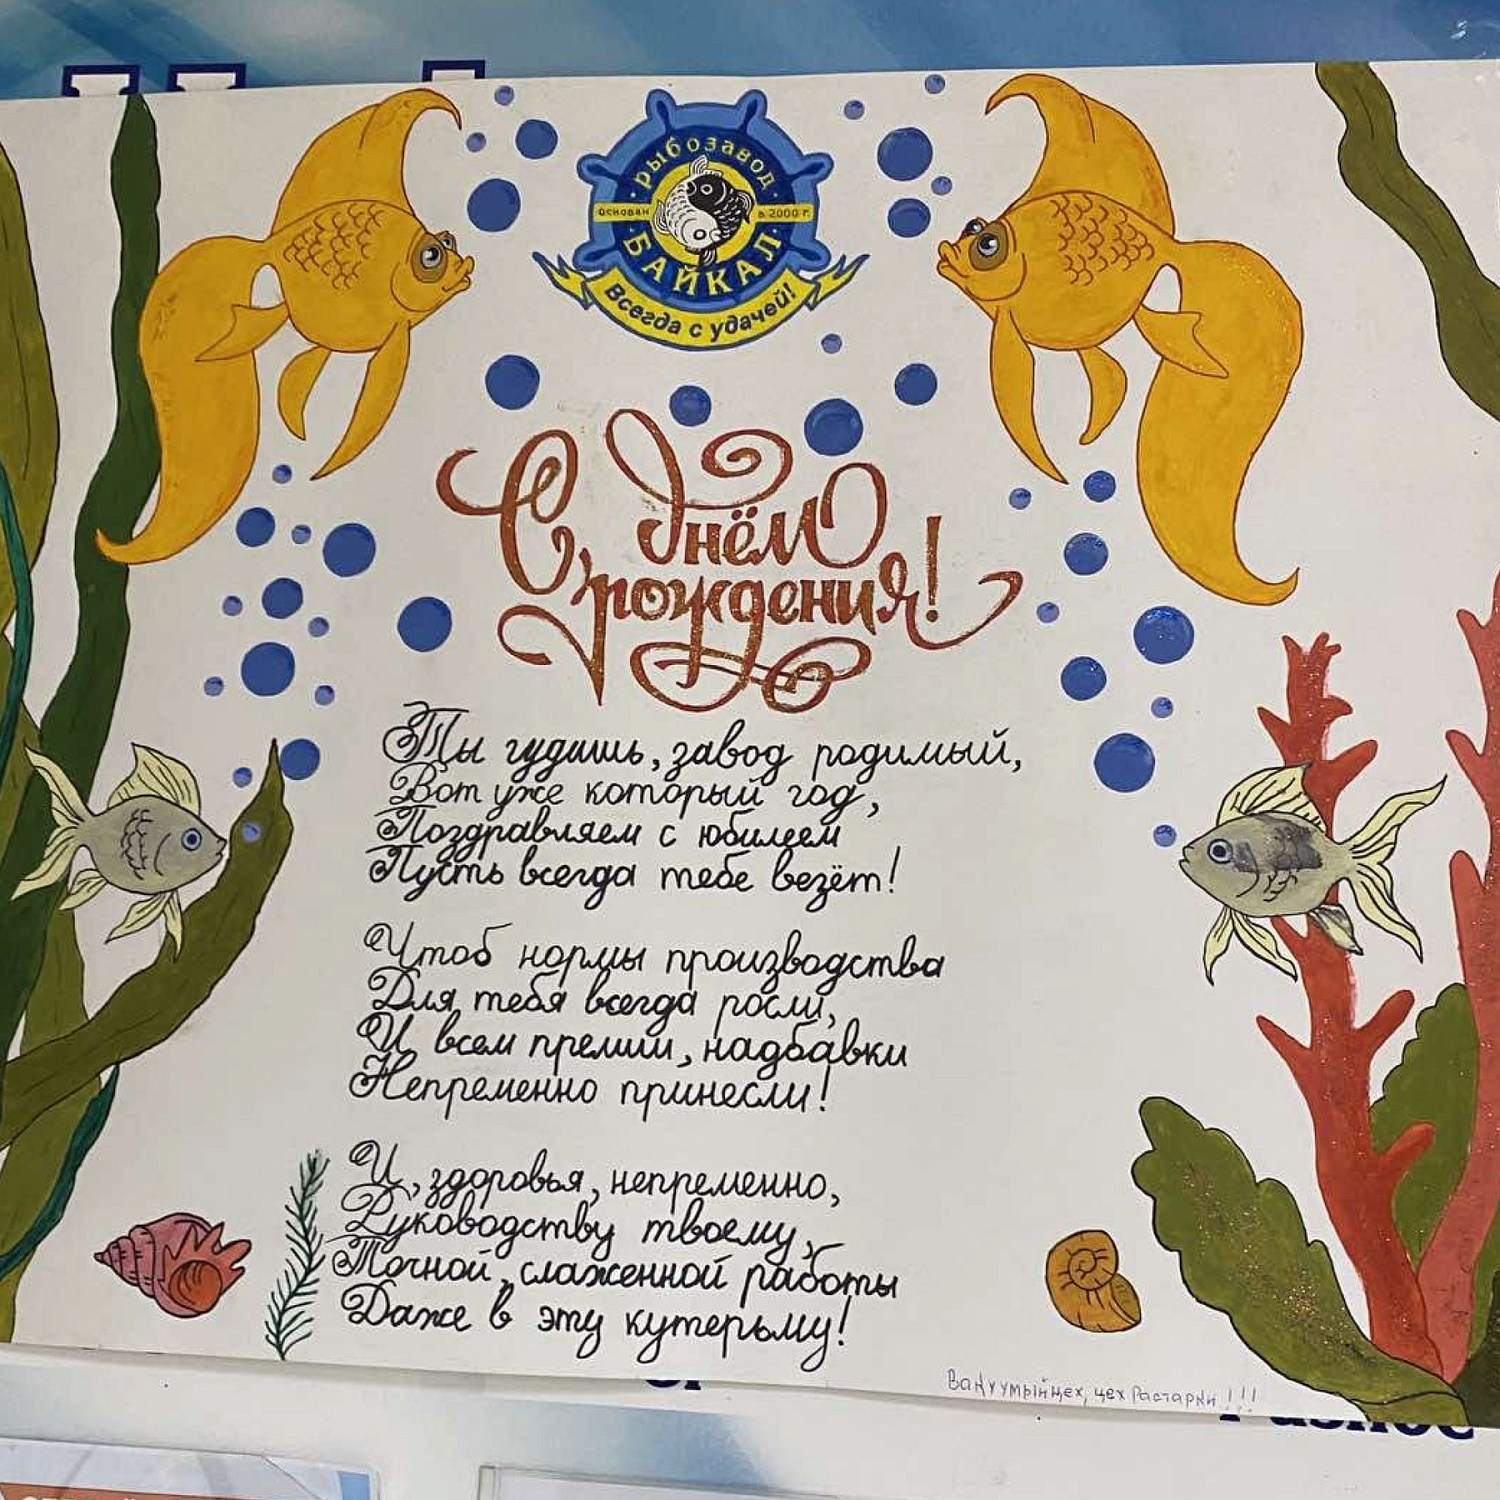 РЫБОЗАВОД
ОСНОВАН В 2000 Г.
БАЙКАЛ
Всегда с удачей!
С днём
рождения!
Ты гудишь, завод родимый,
Вот уже который год,
Поздравляем с юбилеем
Пусть всегда тебе везёт!
Чтоб нормы производства
Для тебя всегда росли,
И всем премии, надбавки
Непременно принесли!
И, здоровья, непременно,
Руководству твоему,
Точной, слаженной работы
Даже в эту кутерьму!
Вакуумыйцех, цех Растарки!!!